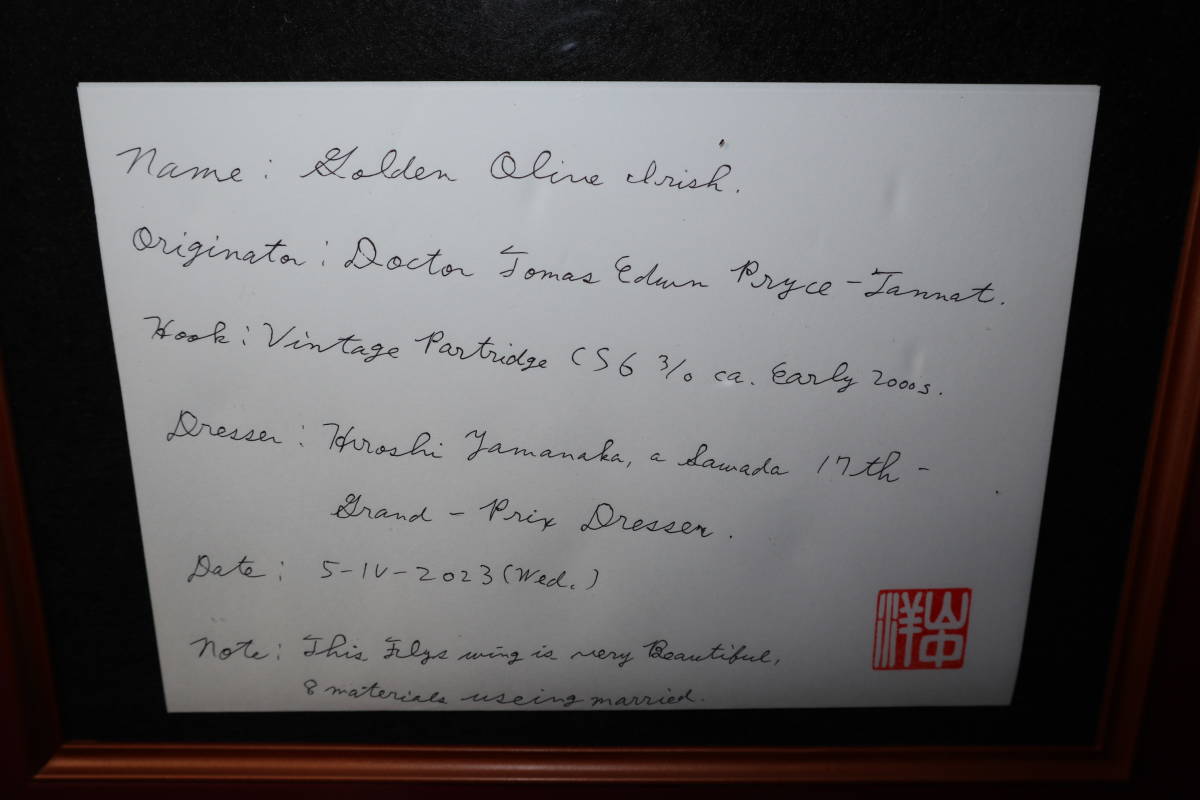 Name : Golden Olive Irish.
Originator : Doctor Tomas Edwin Pryce-Tannat.
Hook : Vintage Partridge CS6 3/0 ca. Early 2000s.
Dresser : Hiroshi Yamanaka, a Sawada 17th-
Grand-Prix Dresser.
Date : 5-IV-2023 (Wed.)
Note : This Flys wing is very Beautiful,
8 materials useing married.
山中洋